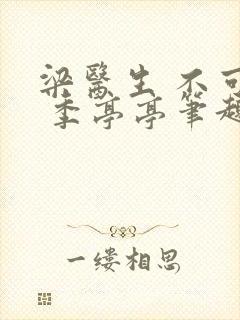 梁医生 不可
季亭亭笔趣
一缕相思